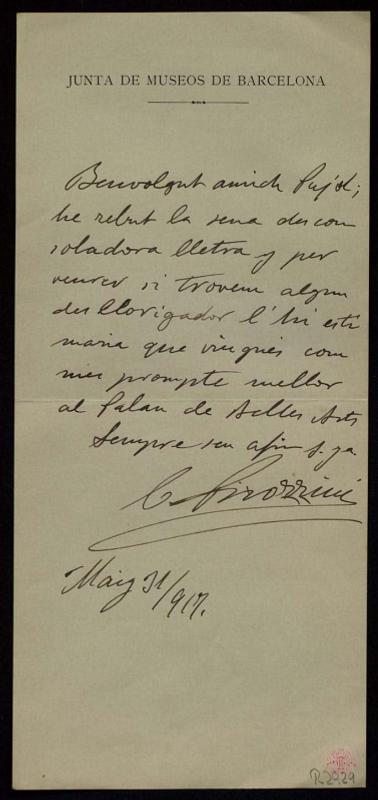 JUNTA DE MUSEOS DE BARCELONA
Benvolgut amich Pujol;
he rebut la seua descon
soladora lletra y per
veurer si trovem algun
desllorigador l'hi esti
maria que vingués com
mes prompte mellor
al Palau de Belles Arts
Sempre seu afm
C. Pirozzini
Maig 31/917.
R.2929